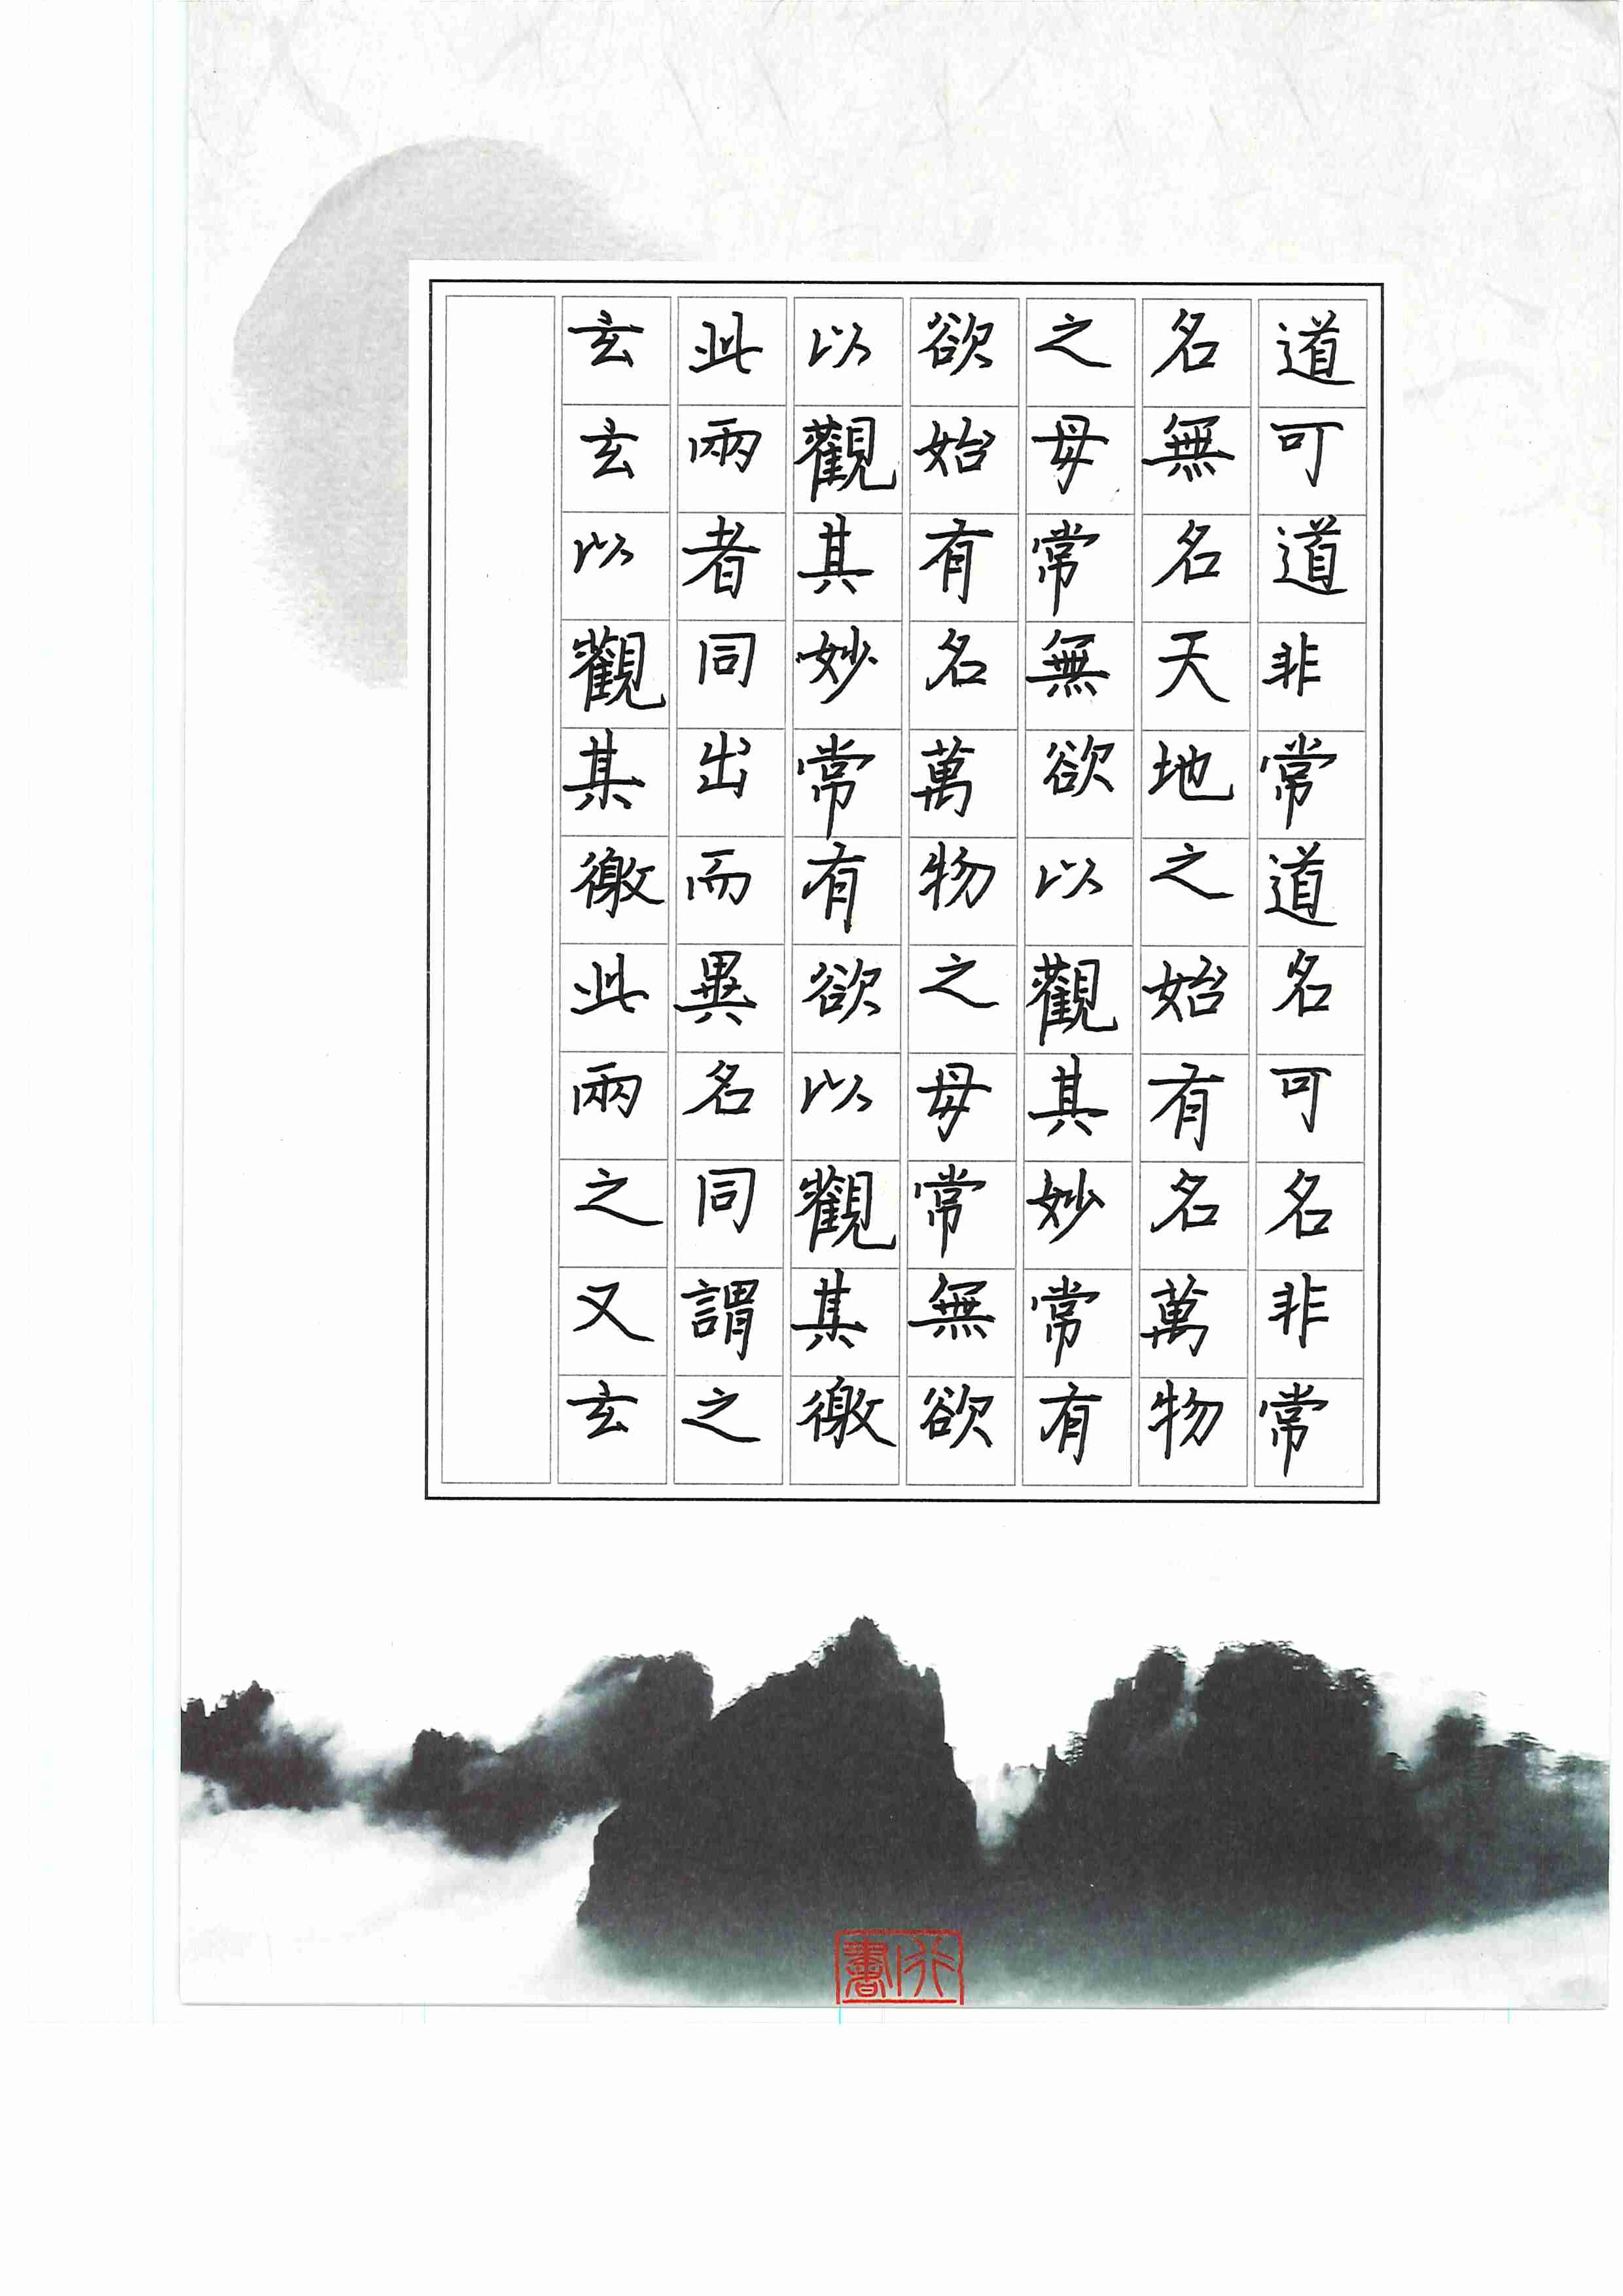 道可道非常道名可名非常
名無名天地之始有名萬物
之母常無欲以觀其妙常有
欲始有名萬物之母常無欲
以觀其妙常有欲以觀其徼
此兩者同出而異名同謂之
玄玄以觀其徼此兩之又玄
行書